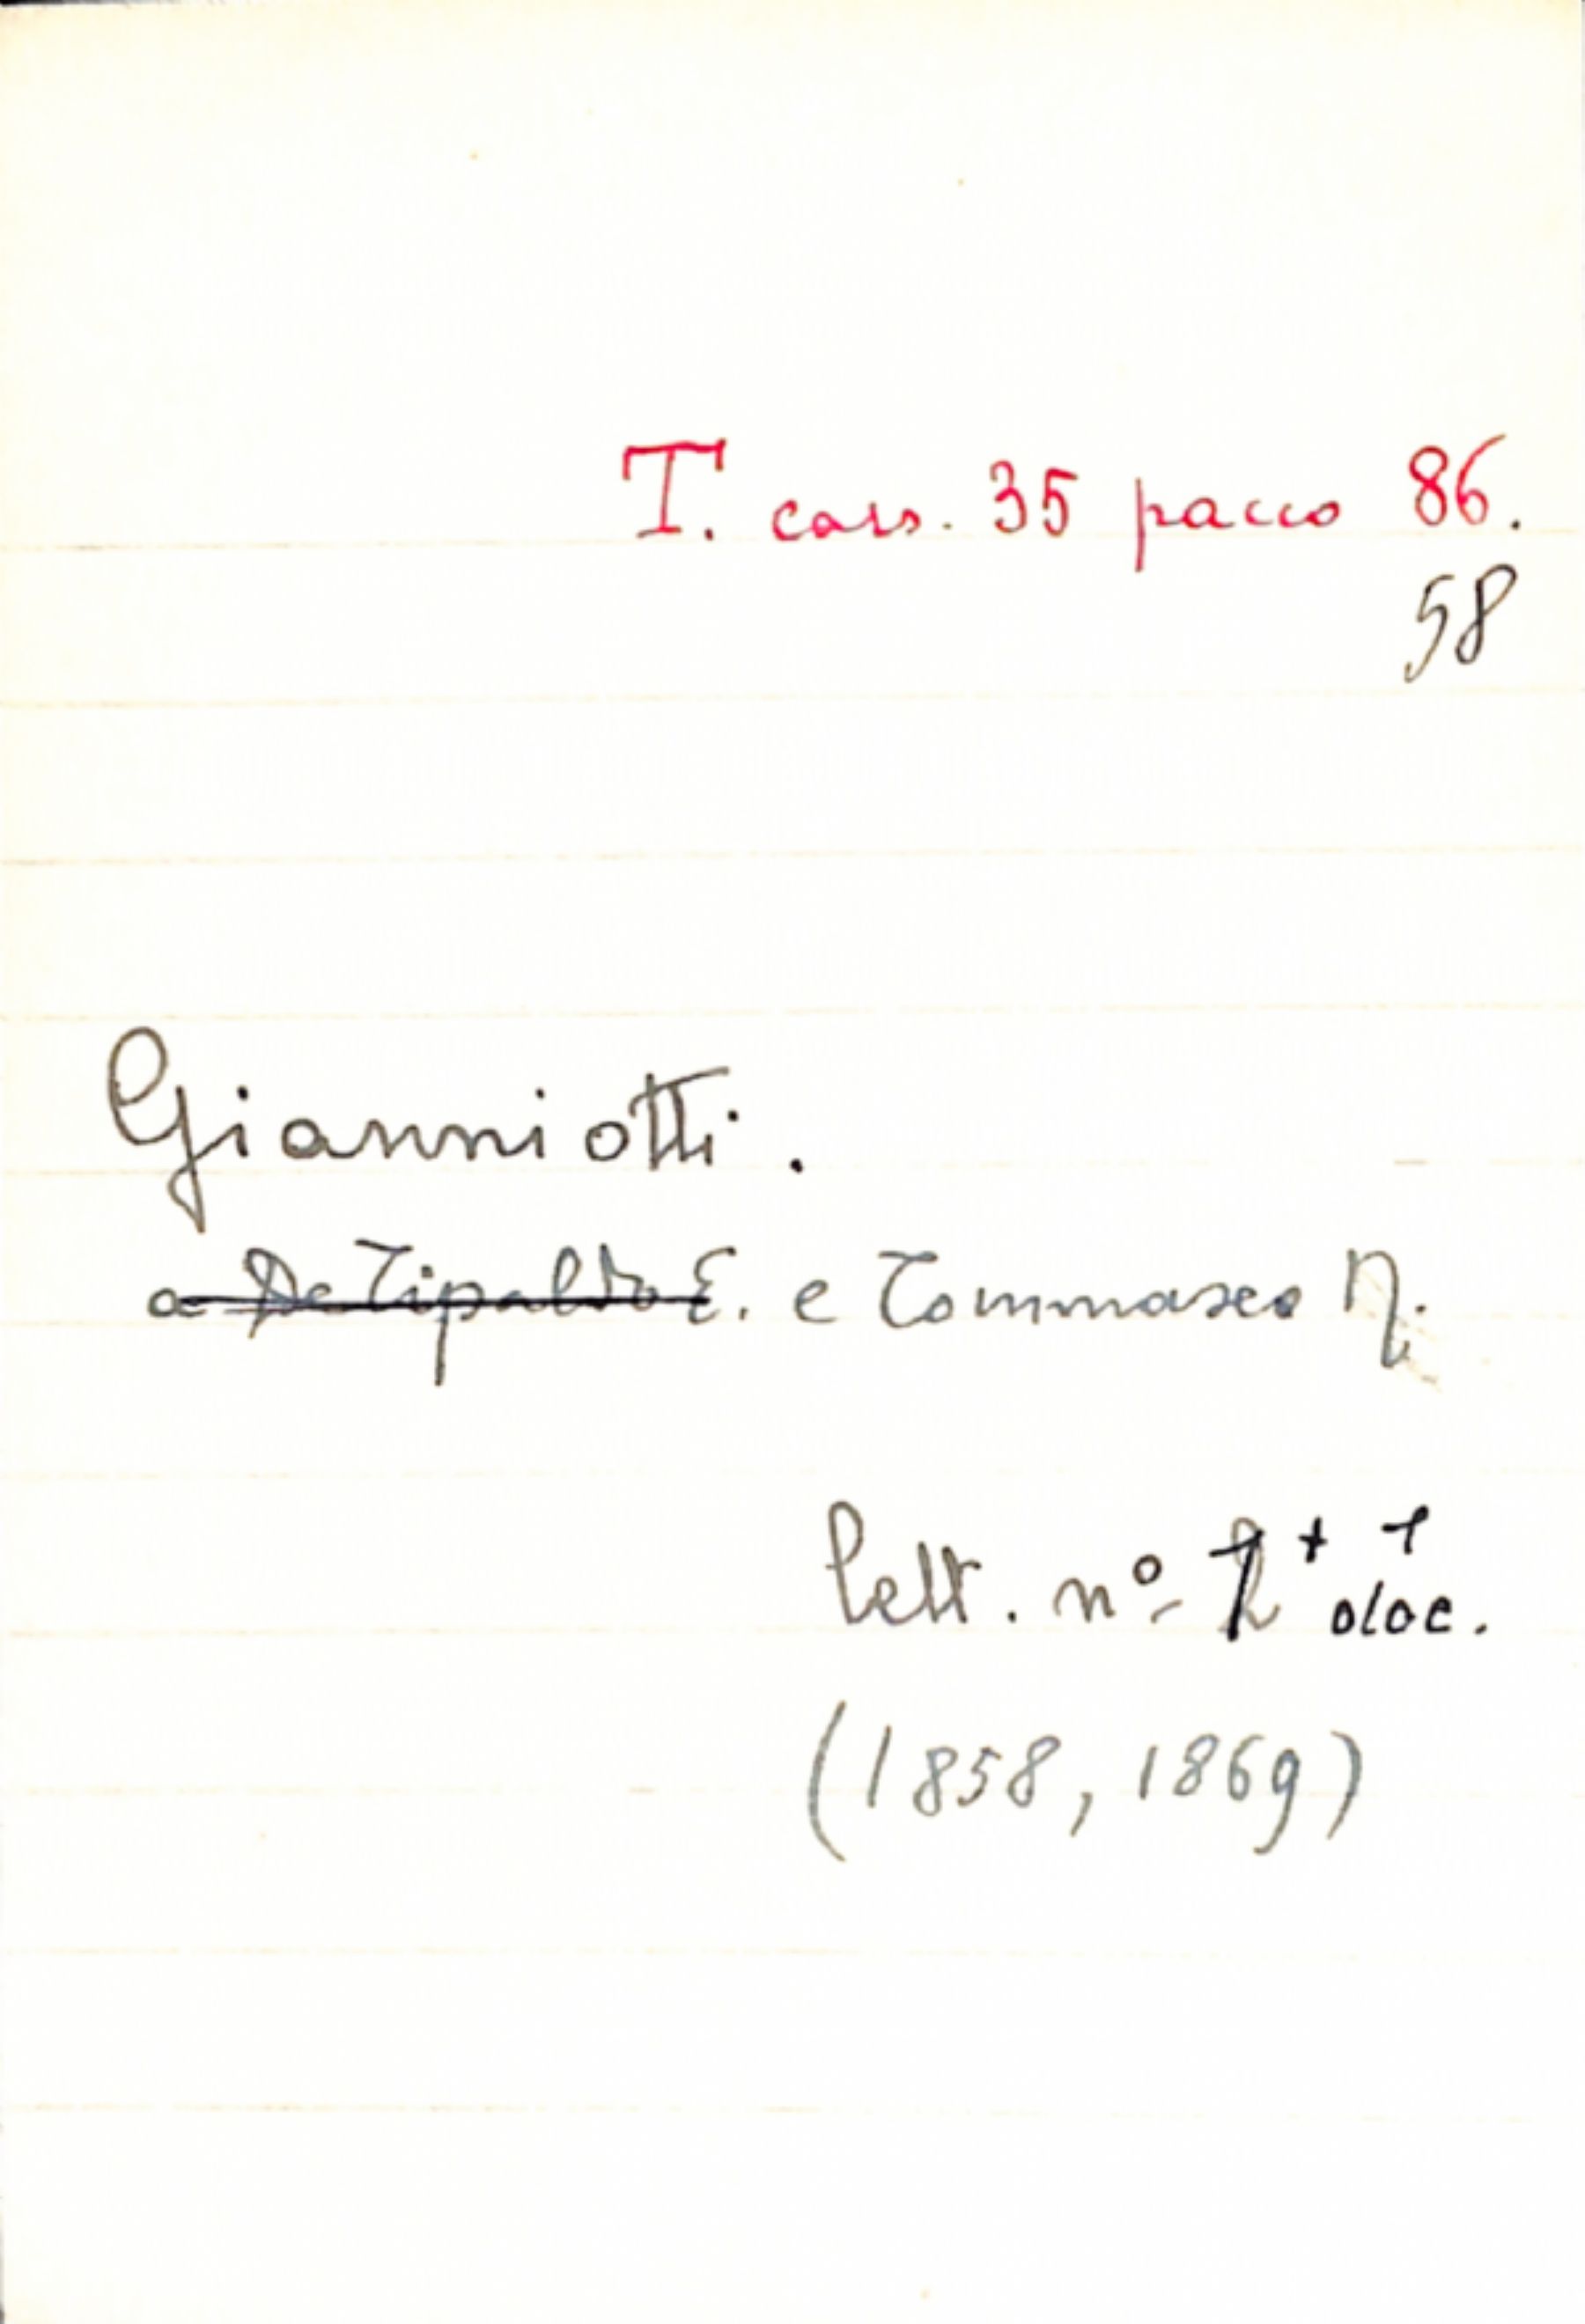 T. cass. 35 pacco 86.
58
Gianniotti.
a De Tipaldo E. e Tommaseo N.
lett. nº 1 + 1
doc.
(1858, 1869)